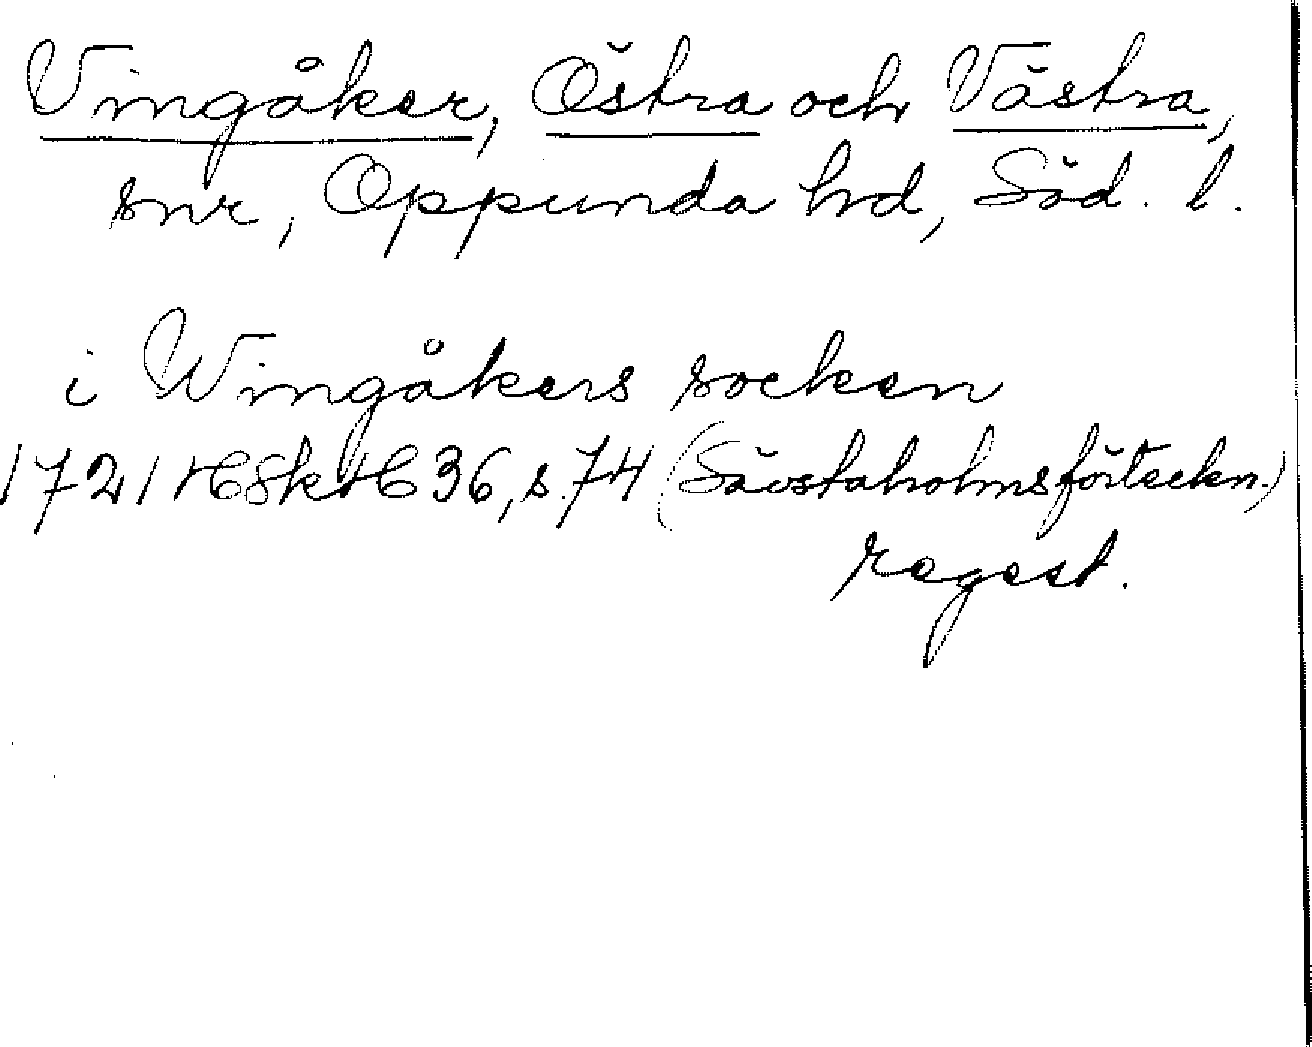 Vingåker, Östra och Västra,
snr, Oppunda hd, Söd. l.
i Wingåkers socken
1721 HSkH 36, s. 74 (Sävstaholmsförteckn.)
regest.